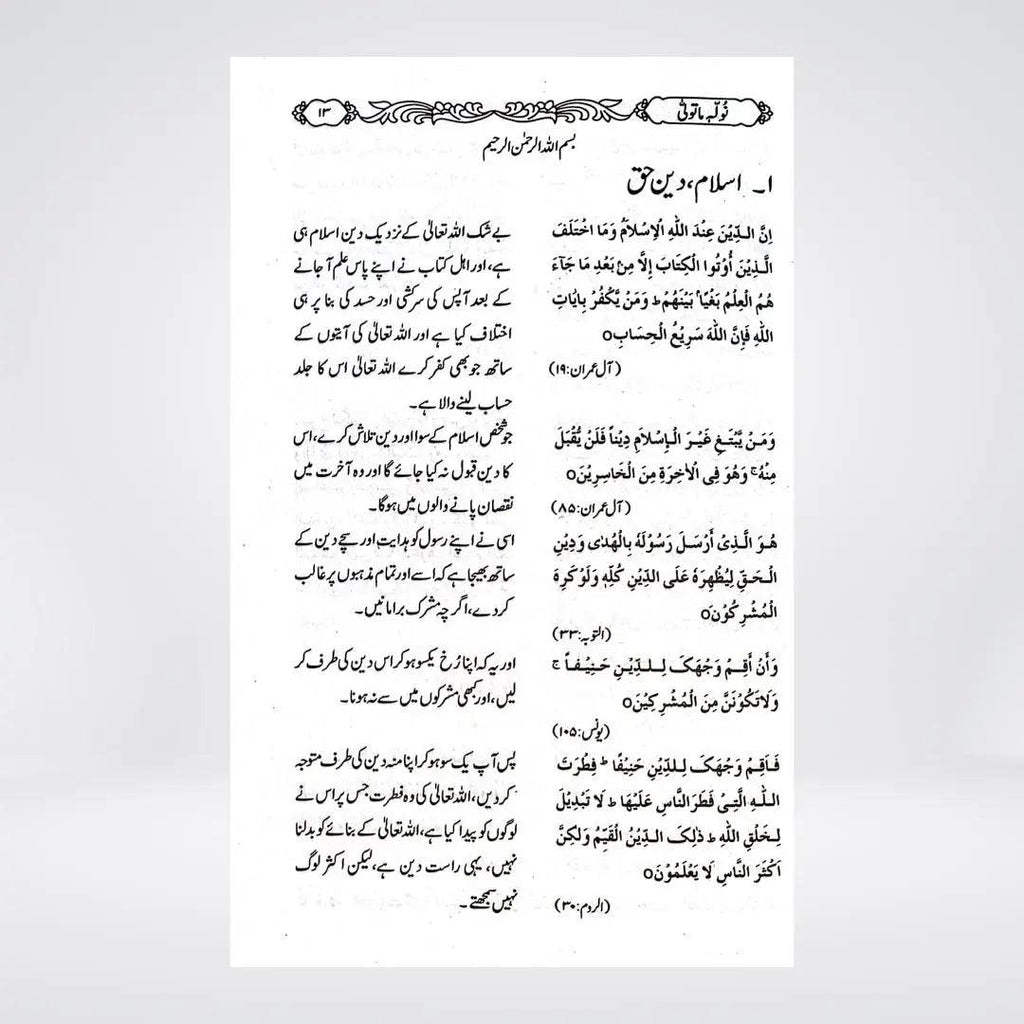 نُوَلِّہٖ مَا تَوَلّٰی
۱۳
بسم اللہ الرحمٰن الرحیم
۱۔ اسلام، دین حق
اِنَّ الدِّیْنَ عِنْدَ اللّٰہِ الْاِسْلَامُ وَمَا اخْتَلَفَ
الَّذِیْنَ أُوْتُوا الْکِتَابَ اِلَّا مِنْ بَعْدِ مَا جَآءَ
ھُمُ الْعِلْمُ بَغْیًا بَیْنَھُمْ ط وَمَنْ یَّکْفُرْ بِاٰیَاتِ
اللّٰہِ فَاِنَّ اللّٰہَ سَرِیْعُ الْحِسَابِ o
(آل عمران:۱۹)
وَمَنْ یَّبْتَغِ غَیْرَ الْاِسْلَامِ دِیْناً فَلَنْ یُّقْبَلَ
مِنْہُ ج وَھُوَ فِی الْاٰخِرَۃِ مِنَ الْخَاسِرِیْنَ o
(آل عمران:۸۵)
ھُوَ الَّذِیْ أَرْسَلَ رَسُوْلَہٗ بِالْھُدٰی وَدِیْنِ
الْحَقِّ لِیُظْھِرَہٗ عَلَی الدِّیْنِ کُلِّہٖ وَلَوْ کَرِہَ
الْمُشْرِکُوْنَ o
(التوبہ:۳۳)
وَأَنْ أَقِمْ وَجْھَکَ لِلدِّیْنِ حَنِیْفاً ج
وَلَا تَکُوْنَنَّ مِنَ الْمُشْرِکِیْنَ o
(یونس:۱۰۵)
فَاَقِمْ وَجْھَکَ لِلدِّیْنِ حَنِیْفًا ط فِطْرَتَ
اللّٰہِ الَّتِیْ فَطَرَ النَّاسَ عَلَیْھَا ط لَا تَبْدِیْلَ
لِخَلْقِ اللّٰہِ ط ذٰلِکَ الدِّیْنُ الْقَیِّمُ وَلٰکِنَّ
اَکْثَرَ النَّاسِ لَا یَعْلَمُوْنَ o
(الروم:۳۰)
بے شک اللہ تعالیٰ کے نزدیک دین اسلام ہی
ہے، اور اہل کتاب نے اپنے پاس علم آ جانے
کے بعد آپس کی سرکشی اور حسد کی بنا پر ہی
اختلاف کیا ہے اور اللہ تعالیٰ کی آیتوں کے
ساتھ جو بھی کفر کرے اللہ تعالیٰ اس کا جلد
حساب لینے والا ہے۔
جو شخص اسلام کے سوا اور دین تلاش کرے، اس
کا دین قبول نہ کیا جائے گا اور وہ آخرت میں
نقصان پانے والوں میں ہوگا۔
اسی نے اپنے رسول کو ہدایت اور سچے دین کے
ساتھ بھیجا ہے کہ اسے اور تمام مذہبوں پر غالب
کر دے، اگر چہ مشرک برا مانیں۔
اور یہ کہ اپنا رُخ یکسو ہو کر اس دین کی طرف کر
لیں، اور کبھی مشرکوں میں سے نہ ہونا۔
پس آپ یک سو ہو کر اپنا منہ دین کی طرف متوجہ
کر دیں، اللہ تعالیٰ کی وہ فطرت جس پر اس نے
لوگوں کو پیدا کیا ہے، اللہ تعالیٰ کے بنائے کو بدلنا
نہیں، یہی راست دین ہے، لیکن اکثر لوگ
نہیں سمجھتے۔